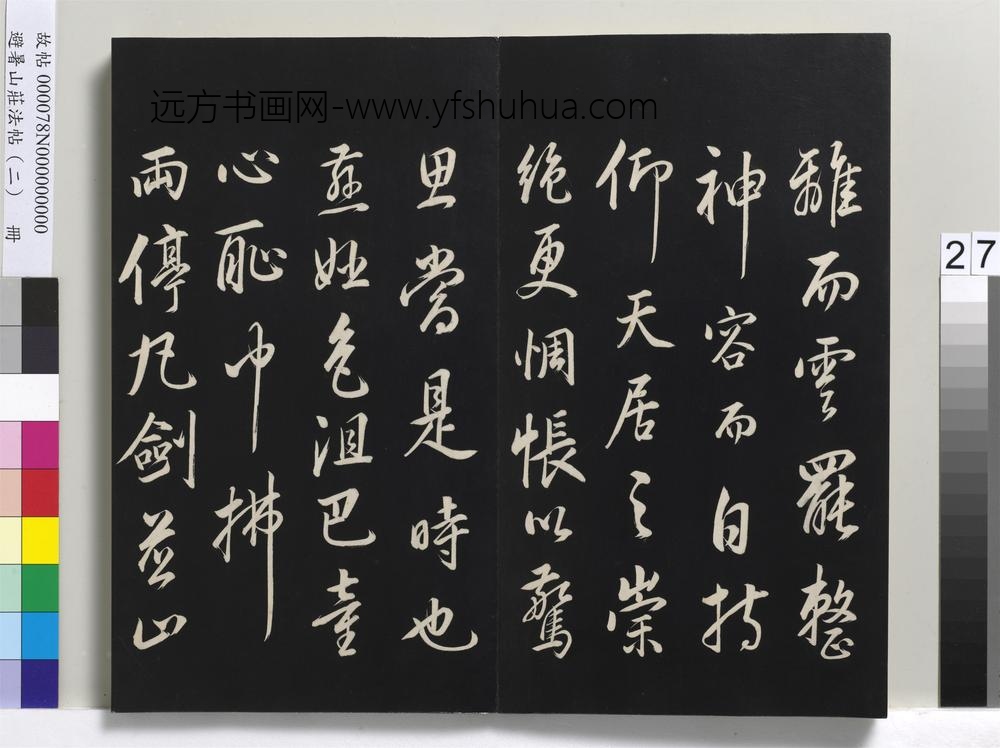 離而雲罷整
神容而自持
仰天居之崇
絕更惆悵以驚
思當是時也
燕姬色沮巴童
心恥巾拂
兩停丸劍並止
远方书画网-www.yfshuhua.com
故帖 000078N000000000
避暑山莊法帖(二) 冊
27